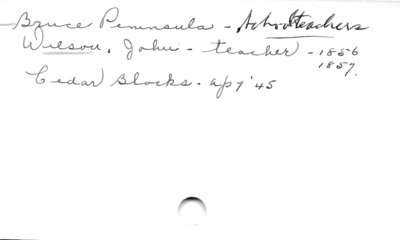 Bruce Peninsula - Schoolteachers
Wilson, John - teacher - 1856
1857.
Cedar Blocks - ap 7 '45